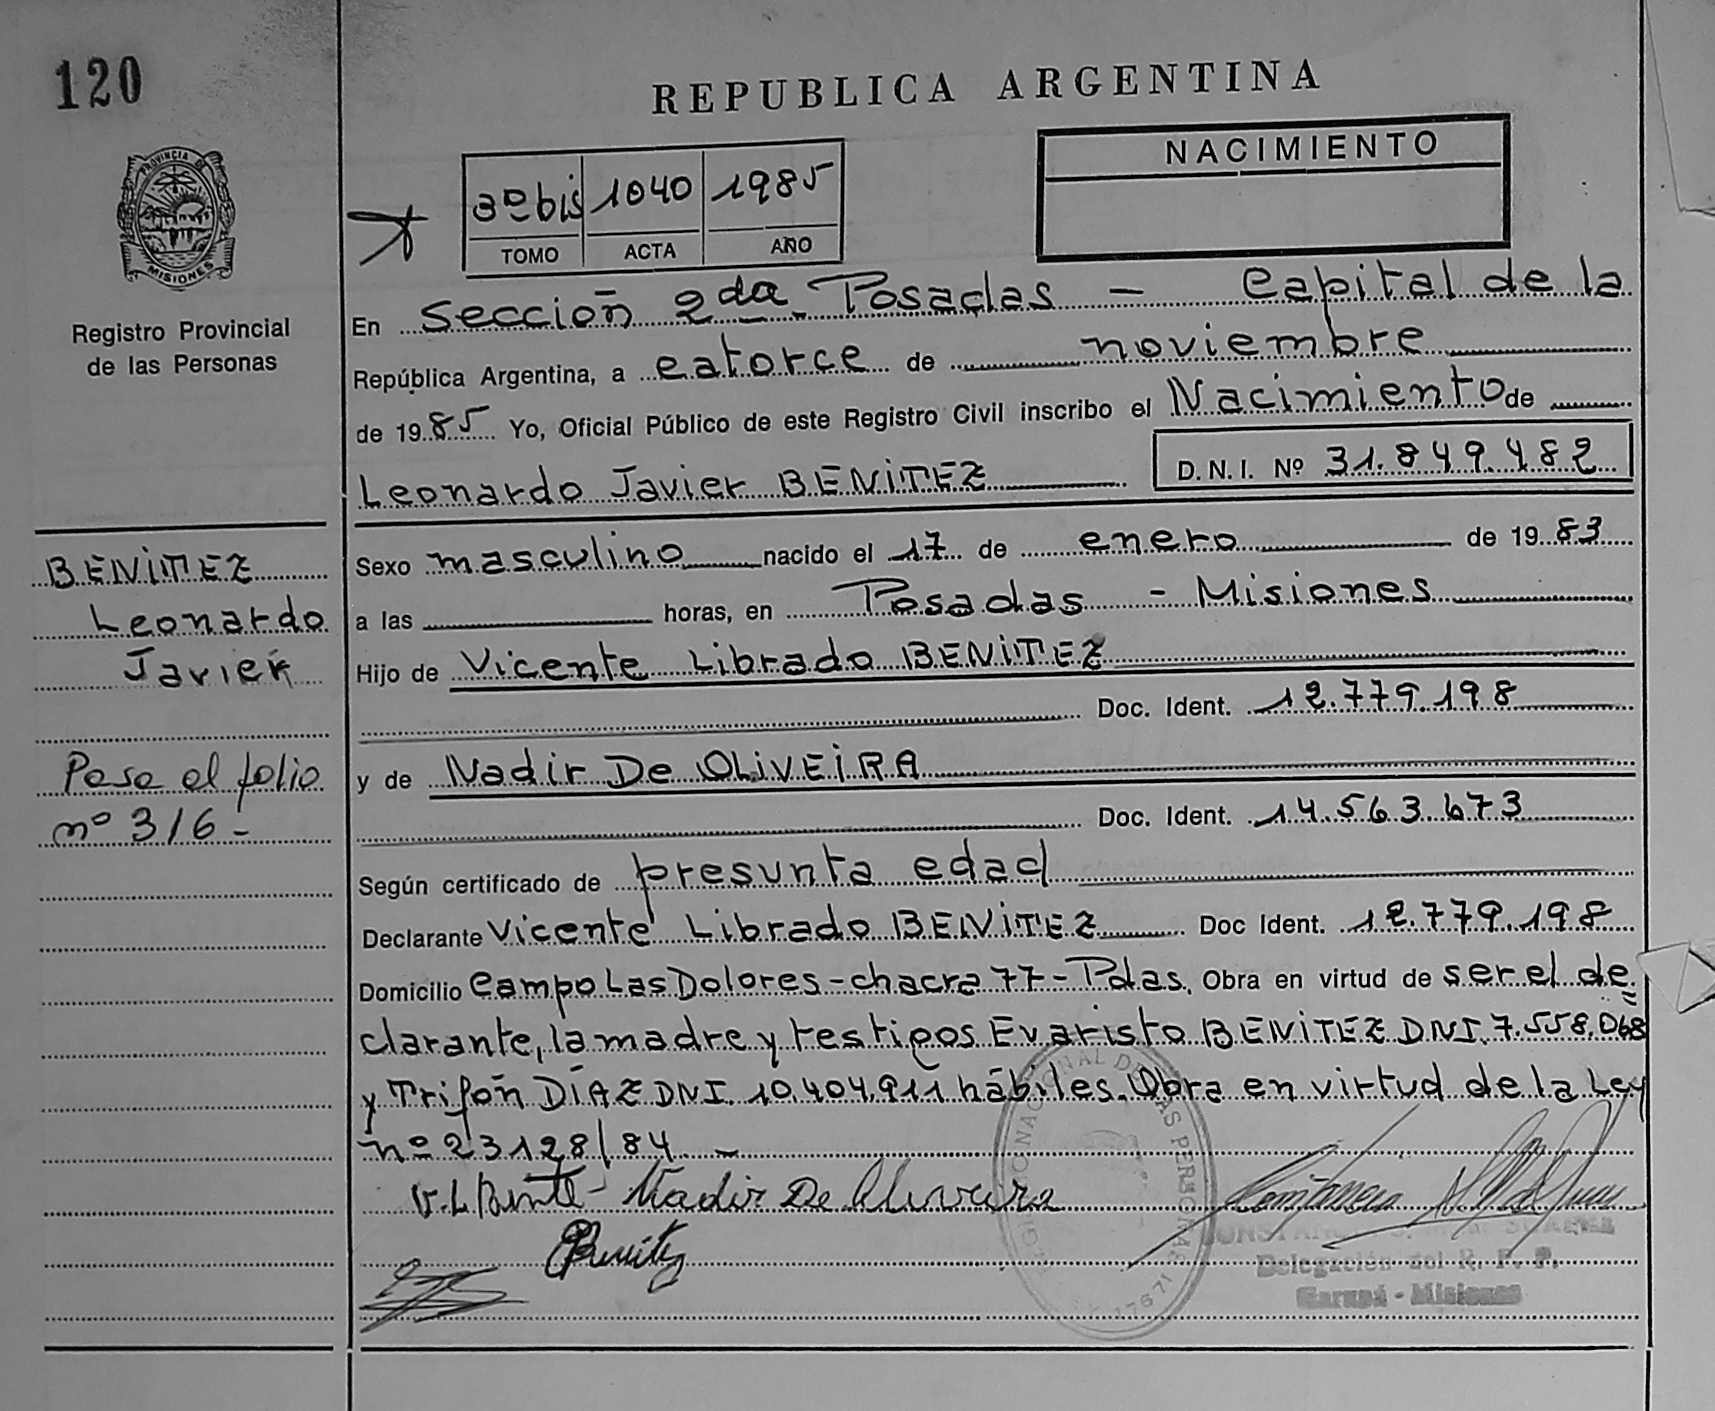 120
REPUBLICA ARGENTINA
PROVINCIA DE
MISIONES
Registro Provincial
de las Personas
3º bis 1040 1985
TOMO ACTA AÑO
NACIMIENTO
En Sección 2da. Posadas - Capital de la
República Argentina, a catorce de noviembre
de 1985 Yo, Oficial Público de este Registro Civil inscribo el Nacimiento de
Leonardo Javier BENITEZ D.N.I. Nº 31.849.482
BENITEZ
Leonardo
Javier
Pasa al folio
nº 316-
Sexo masculino nacido el 17 de enero de 1983
a las horas, en Posadas - Misiones
Hijo de Vicente Librado BENITEZ
Doc. Ident. 12.779.198
y de Nadir De OLIVEIRA
Doc. Ident. 14.563.673
Según certificado de presunta edad
Declarante Vicente Librado BENITEZ Doc Ident. 12.779.198
Domicilio Campo Las Dolores - chacra 77 - Pdas. Obra en virtud de ser el de=
clarante, la madre y testigos Evaristo BENITEZ DNI. 7.558.068
y Trifón DÍAZ DNI. 10.404.911 hábiles. Obra en virtud de la Ley
nº 23128/84 -
Nadir De Oliveira
Benitez
Delegación del R. P. P.
Garupá - Misiones